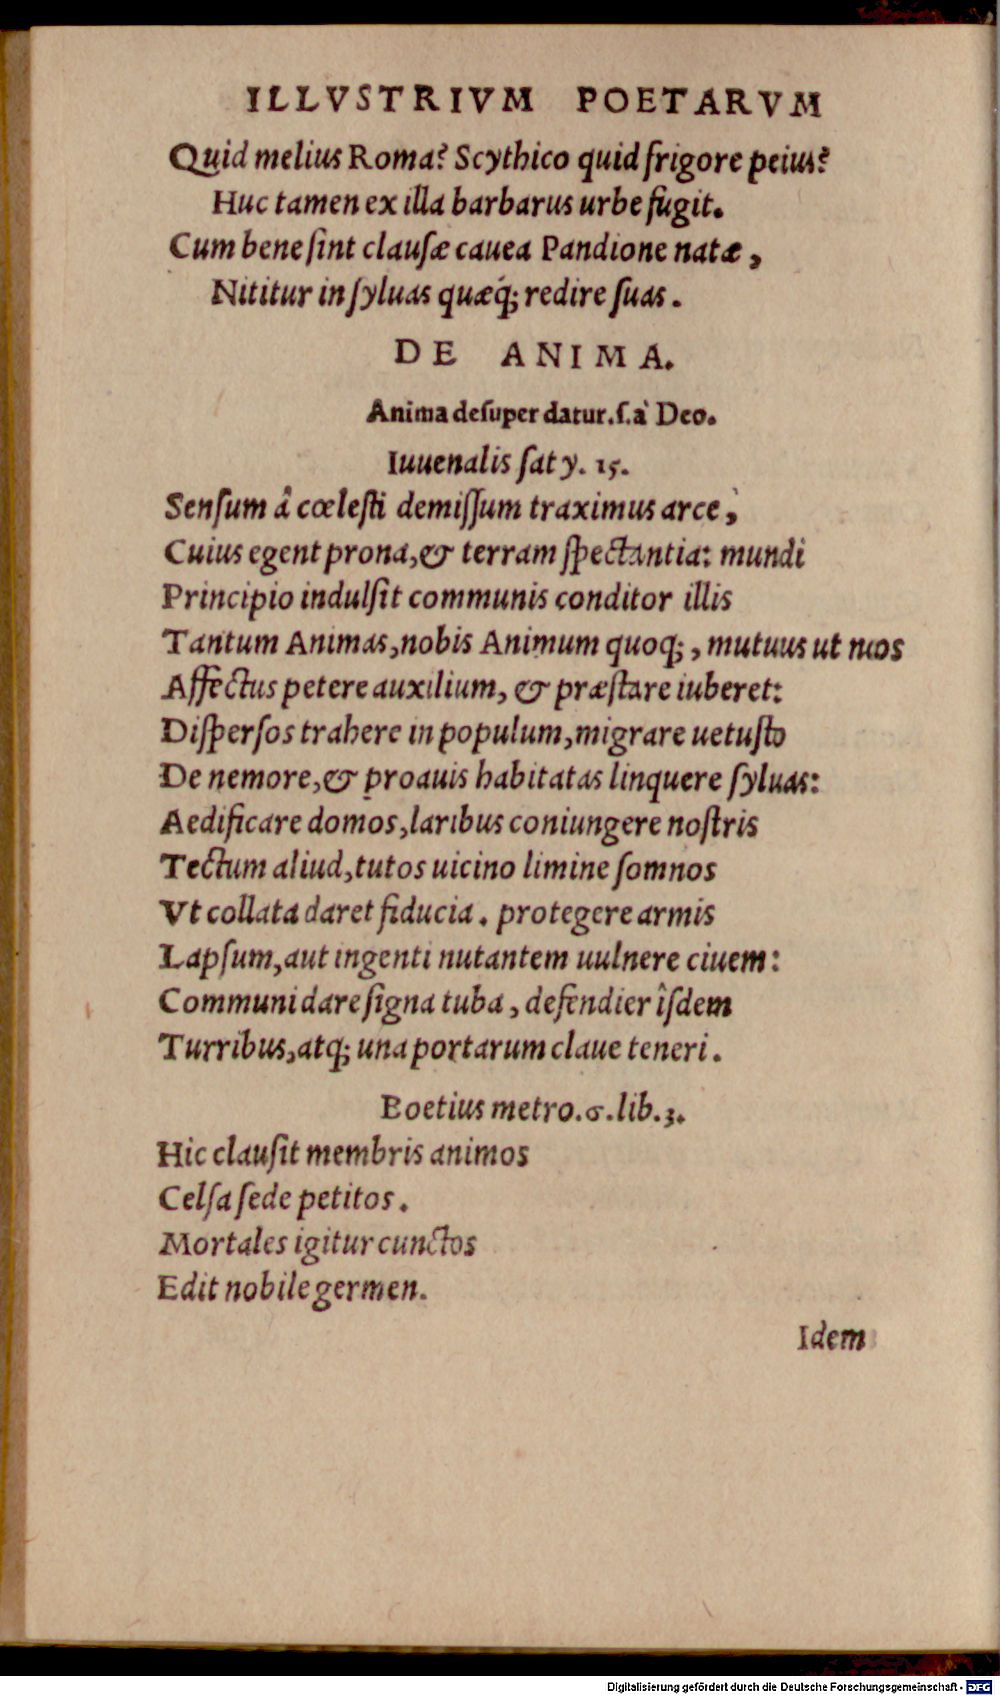 ILLVSTRIVM POETARVM
Quid melius Roma? Scythico quid frigore peius?
Huc tamen ex illa barbarus urbe fugit.
Cum bene ſint clauſæ cauea Pandione natæ,
Nititur in ſyluas quæq́; redire ſuas.
DE ANIMA.
Anima deſuper datur.ſ.à Deo.
Iuuenalis ſaty. 15.
Senſum â cœleſti demiſſum traximus arce,
Cuius egent prona, & terram ſpectantia: mundi
Principio indulſit communis conditor illis
Tantum Animas, nobis Animum quoq;, mutuus ut nos
Affectus petere auxilium, & præſtare iuberet:
Diſperſos trahere in populum, migrare uetuſto
De nemore, & proauis habitatas linquere ſyluas:
Aedificare domos, laribus coniungere noſtris
Tectum aliud, tutos uicino limine ſomnos
Vt collata daret fiducia. protegere armis
Lapſum, aut ingenti nutantem uulnere ciuem:
Communi dare ſigna tuba, defendier îſdem
Turribus, atq; una portarum claue teneri.
Boetius metro.6.lib.3.
Hic clauſit membris animos
Celſa ſede petitos.
Mortales igitur cunctos
Edit nobile germen.
Idem
Digitalisierung gefördert durch die Deutsche Forschungsgemeinschaft - DFG